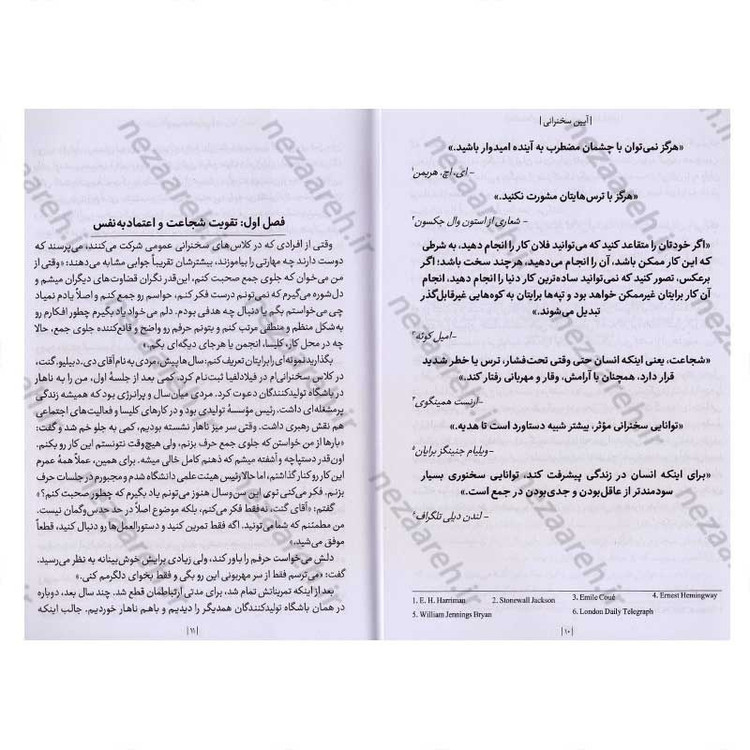 | آیین سخنرانی |
«هرگز نمی‌توان با چشمان مضطرب به آینده امیدوار باشید.»
- ای. اچ. هریمن۱
«هرگز با ترس‌هایتان مشورت نکنید.»
- شعاری از استون وال جکسون۲
«اگر خودتان را متقاعد کنید که می‌توانید فلان کار را انجام دهید، به شرطی
که این کار ممکن باشد، آن را انجام می‌دهید، هر چند سخت باشد؛ اگر
برعکس، تصور کنید که نمی‌توانید ساده‌ترین کار دنیا را انجام دهید، انجام
آن کار برایتان غیرممکن خواهد بود و تپه‌ها برایتان به کوه‌هایی غیرقابل‌گذر
تبدیل می‌شوند.»
-امیل کوئه۳
«شجاعت، یعنی اینکه انسان حتی وقتی تحت‌فشار، ترس یا خطر شدید
قرار دارد، همچنان با آرامش، وقار و مهربانی رفتار کند.»
-ارنست همینگوی۴
«توانایی سخنرانی مؤثر، بیشتر شبیه دستاورد است تا هدیه.»
-ویلیام جنینگز برایان۵
«برای اینکه انسان در زندگی پیشرفت کند، توانایی سخنوری بسیار
سودمندتر از عاقل‌بودن و جدی‌بودن در جمع است.»
- لندن دیلی تلگراف۶
1. E. H. Harriman 2. Stonewall Jackson 3. Emile Coué 4. Ernest Hemingway
5. William Jennings Bryan 6. London Daily Telegraph
| ۱۰ |
فصل اول: تقویت شجاعت و اعتمادبه‌نفس
وقتی از افرادی که در کلاس‌های سخنرانی عمومی شرکت می‌کنند، می‌پرسند که
دوست دارند چه مهارتی را بیاموزند، بیشترشان تقریباً جوابی مشابه می‌دهند: «وقتی از
من می‌خوان که جلوی جمع صحبت کنم، این‌قدر نگران قضاوت‌های دیگران میشم و
دل‌شوره می‌گیرم که نمی‌تونم درست فکر کنم، حواسم رو جمع کنم و اصلاً یادم نمیاد
چی می‌خواستم بگم یا دنبال چه هدفی بودم. دلم می‌خواد یاد بگیرم چطور افکارم رو
به‌شکل منظم و منطقی مرتب کنم و بتونم حرفم رو واضح و قانع‌کننده جلوی جمع، حالا
چه در محل کار، کلیسا، انجمن یا هرجای دیگه‌ای بگم.»
بگذارید نمونه‌ای را برایتان تعریف کنم: سال‌ها پیش، مردی به نام آقای دی. دبیلیو. گنت،
در کلاس سخنرانی‌ام در فیلادلفیا ثبت‌نام کرد، کمی بعد از جلسهٔ اول، من را به ناهار
در باشگاه تولیدکنندگان دعوت کرد. مردی میان‌سال و پرانرژی بود که همیشه زندگی
پرمشغله‌ای داشت. رئیس مؤسسهٔ تولیدی بود و در کارهای کلیسا و فعالیت‌های اجتماعی
هم نقش رهبری داشت. وقتی سر میز ناهار نشسته بودیم، کمی به جلو خم شد و گفت:
«بارها از من خواستن که جلوی جمع حرف بزنم، ولی هیچ‌وقت نتونستم این کار رو بکنم.
اون‌قدر دستپاچه و آشفته میشم که ذهنم کامل خالی میشه. برای همین، عملاً همهٔ عمرم
این کار رو کنار گذاشتم، اما حالا رئیس هیئت‌علمی دانشگاه شدم و مجبورم در جلسات حرف
بزنم. فکر می‌کنی توی این سن‌وسال هنوز می‌تونم یاد بگیرم که چطور صحبت کنم؟»
گفتم: «آقای گنت، نه‌فقط فکر می‌کنم، بلکه موضوع اصلاً در حد حدس‌وگمان نیست.
من مطمئنم که شما می‌تونید. اگه فقط تمرین کنید و دستورالعمل‌ها رو دنبال کنید، قطعاً
موفق می‌شید.»
دلش می‌خواست حرفم را باور کند، ولی زیادی برایش خوش‌بینانه به نظر می‌رسید.
گفت: «می‌ترسم فقط از سر مهربونی این رو بگی و فقط بخوای دلگرمم کنی.»
بعد از اینکه تمریناتش تمام شد، برای مدتی ارتباطمان قطع شد. چند سال بعد، دوباره
در همان باشگاه تولیدکنندگان همدیگر را دیدیم و باهم ناهار خوردیم. جالب اینکه
| ۱۱ |
nezaareh.ir